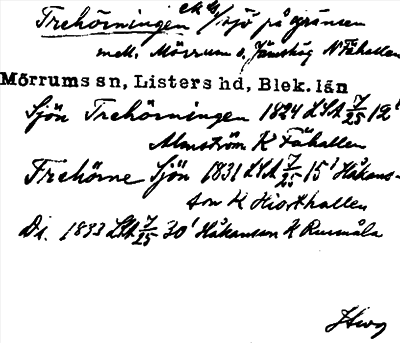 Trehörningen ek bl/sjö på gränsen
mell. Mörrum o. Jämshög N Fähallen
Mörrums sn, Listers hd, Blek. län
Sjön Trehörningen 1824 LSA 7/25 12'
Almström K Fähallen
Trehörne Sjön 1831 LSA 7/25 15' Håkans-
son K Hiorthallen
Ds. 1833 LSA 7/25 30' Håkanson K Rusmåla